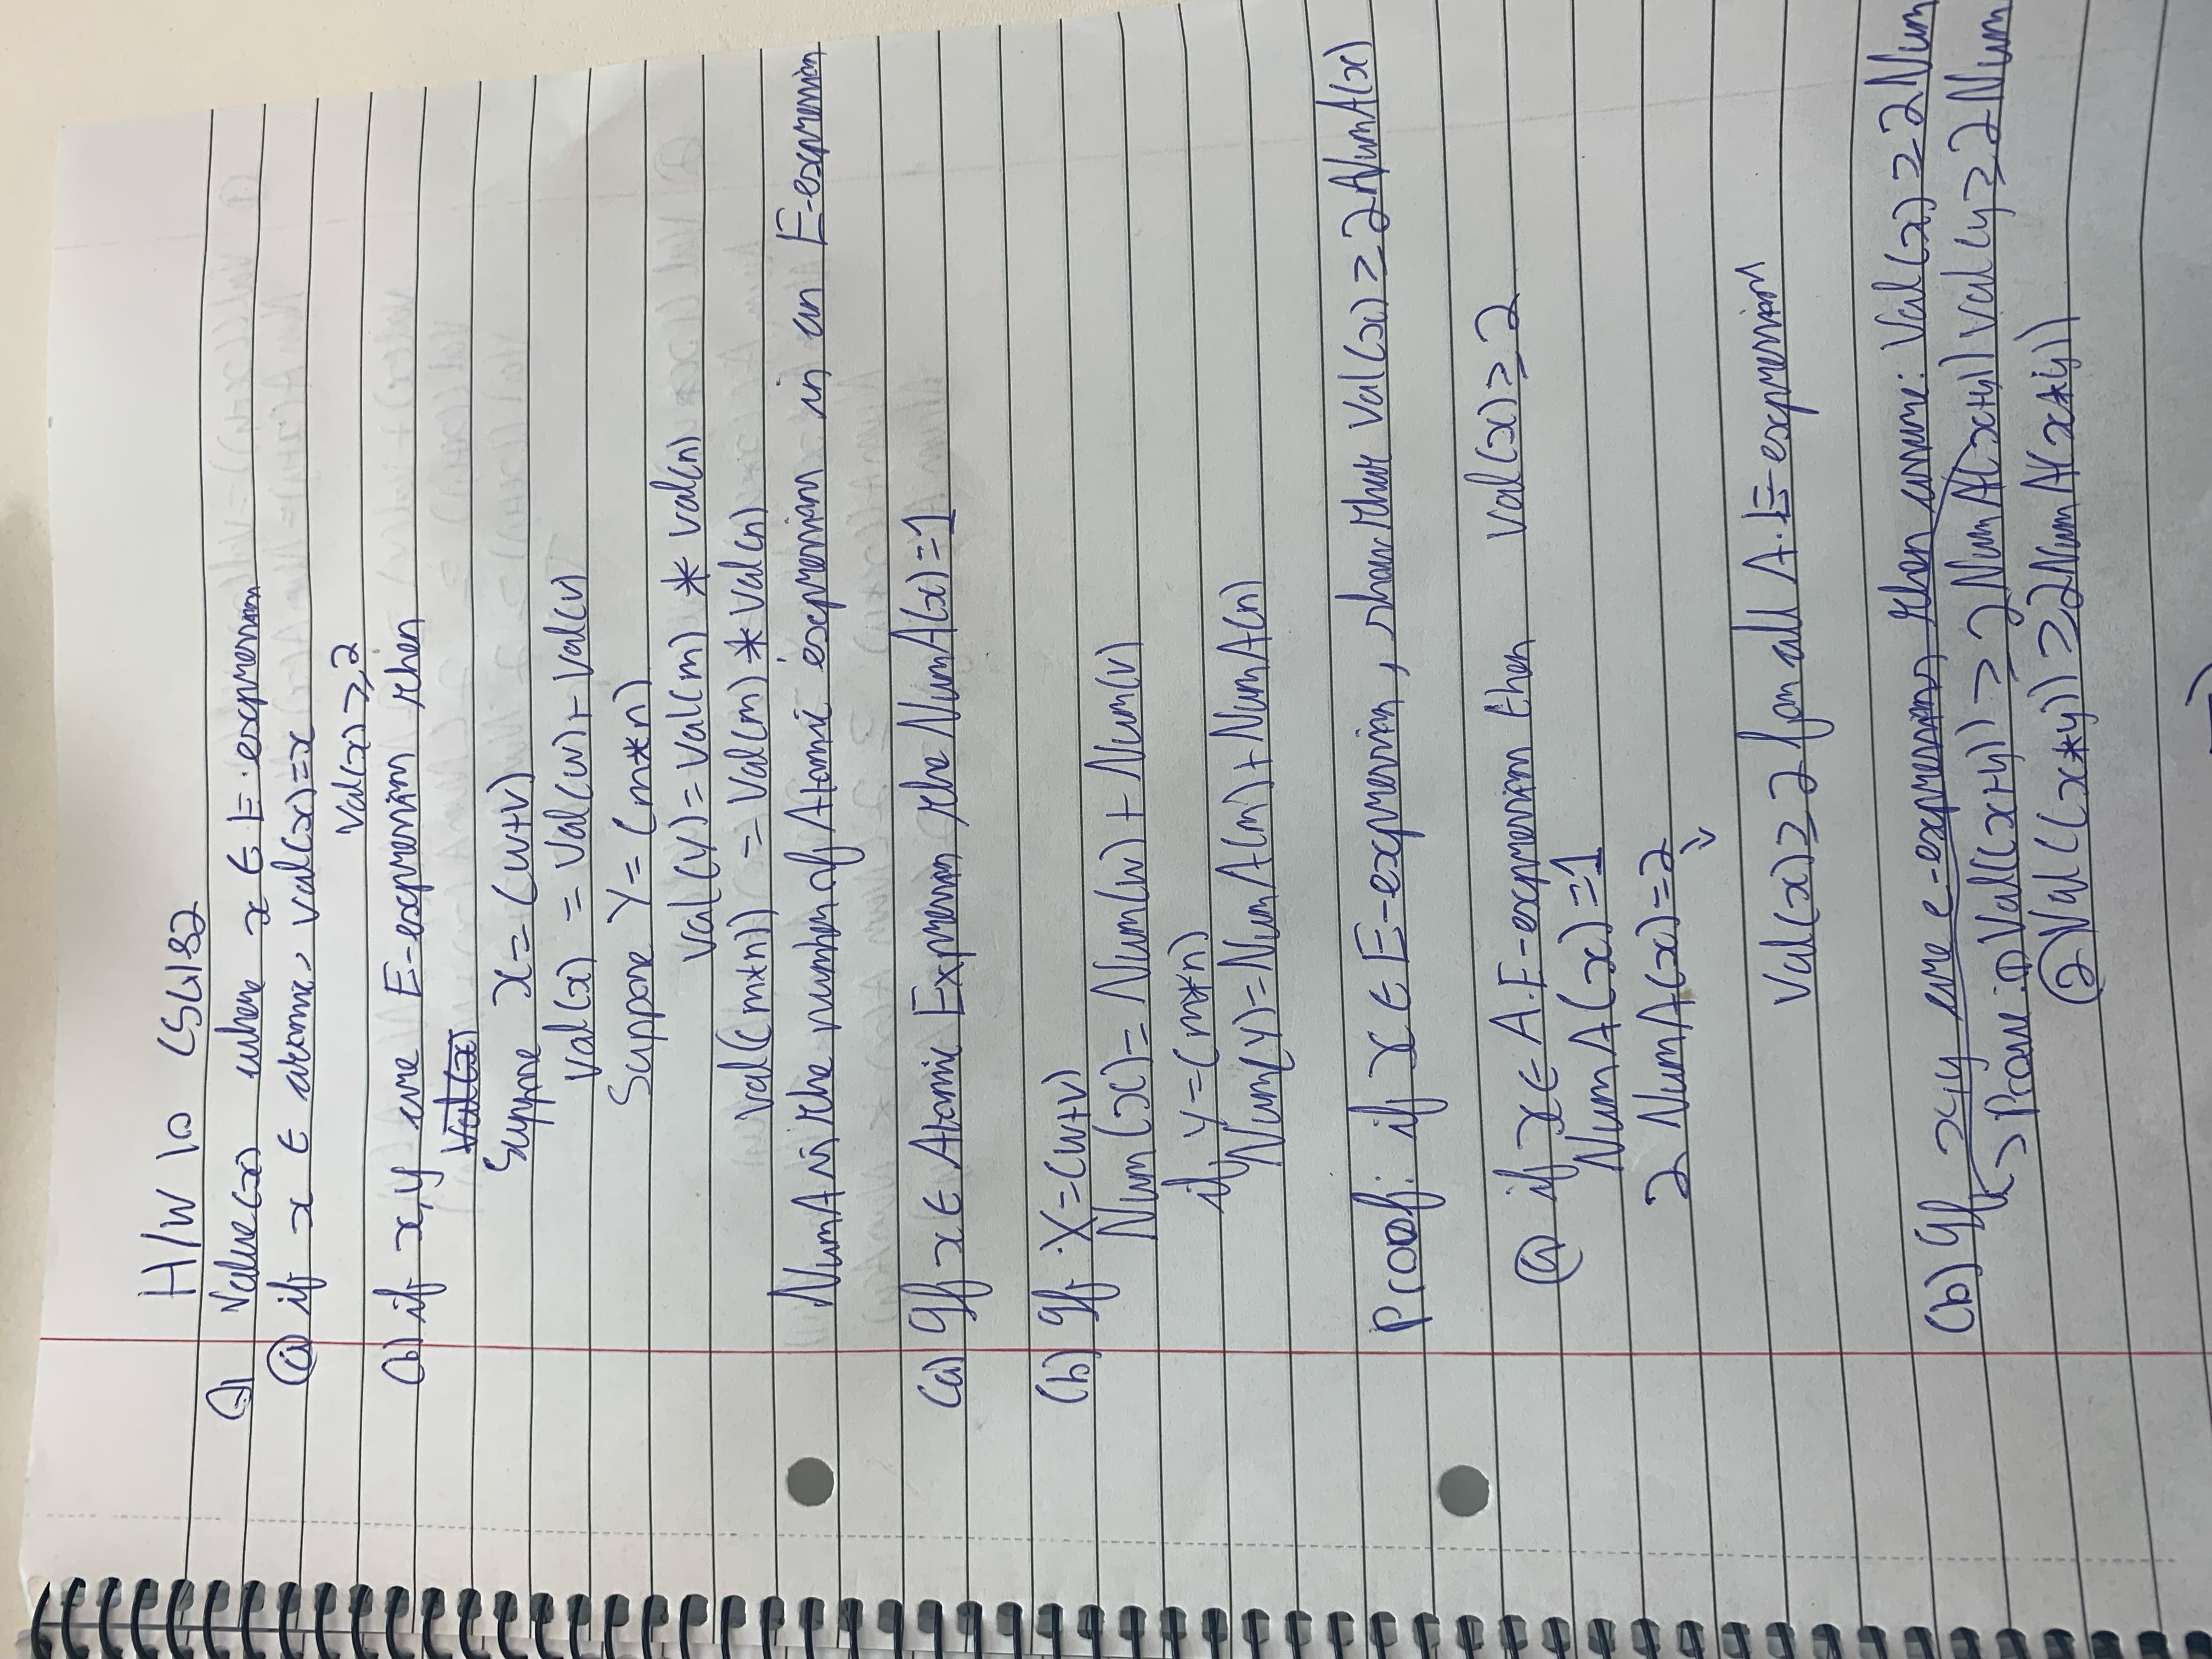 H/W 10 CS4182
Q1 Value(x) where x ∈ E-expression
(a) if x ∈ atomic, Val(x)=x
Val(x) ≥ 2
(b) if x,y are E-expression then
Val(x)
Suppose x = (w+v)
Val(x) = Val(w) + Val(v)
Suppose Y = (m*n)
Val(Y) = Val(m) * Val(n)
Val((m*n)) = Val(m) * Val(n)
NumA is the number of Atomic expressions in an E-expression
(a) If x ∈ Atomic Expression the NumA(x)=1
(b) If X=(w+v)
Num(x) = Num(w) + Num(v)
if Y=(m*n)
Num(Y)=NumA(m)+NumA(n)
Proof: if x ∈ E-expression, show that Val(x) ≥ 2NumA(x)
(a) if x ∈ A.E-expression then Val(x) ≥ 2
NumA(x)=1
2 NumA(x)=2
↓
Val(x) ≥ 2 for all A.E-expression
(b) If x,y are e-expressions then assume: Val(x) ≥ 2Num
> Prove: ① Val((x+y)) ≥ 2NumA(x+y)) Val(y ≥ 2Num
② Val((x*y)) ≥ 2NumA(x*y))